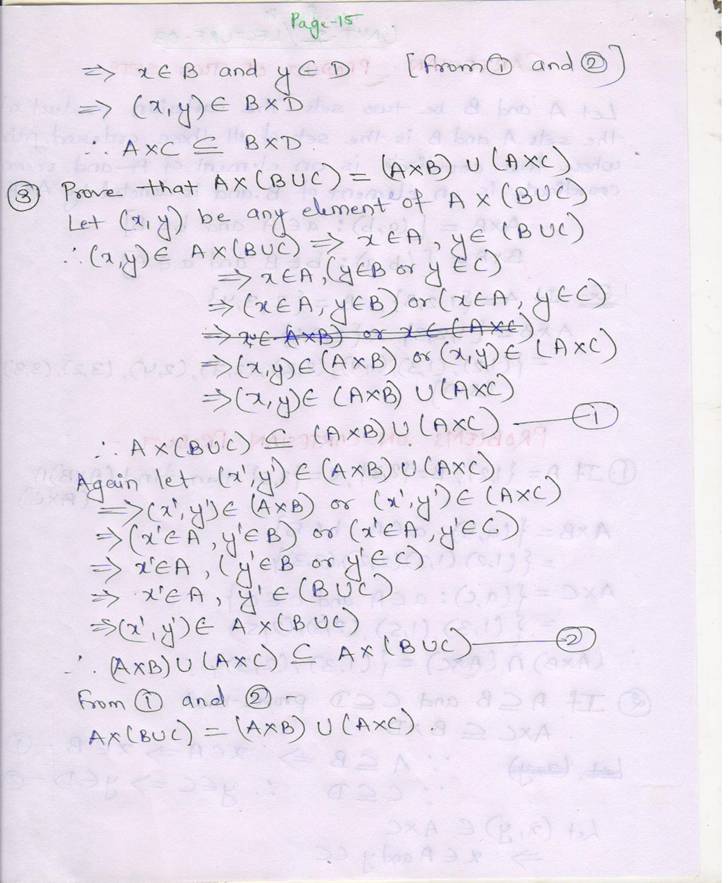 Page-15
⇒ x∈B and y∈D [from ① and ②]
⇒ (x,y)∈ B×D
∴ A×C ⊆ B×D.
③ Prove that A×(B∪C) = (A×B) ∪ (A×C)
Let (x,y) be any element of A×(B∪C)
∴(x,y)∈ A×(B∪C) ⇒ x∈A, y∈(B∪C)
⇒ x∈A, (y∈B or y∈C)
⇒(x∈A, y∈B) or (x∈A, y∈C)
⇒ x∈(A×B) or x∈(A×C)
⇒(x,y)∈(A×B) or (x,y)∈(A×C)
⇒(x,y)∈ (A×B) ∪ (A×C)
∴ A×(B∪C) ⊆ (A×B) ∪ (A×C) — ①
Again let (x',y')∈(A×B)∪(A×C)
⇒(x',y')∈ (A×B) or (x',y')∈(A×C)
⇒(x'∈A, y'∈B) or (x'∈A, y'∈C)
⇒ x'∈A, (y'∈B or y'∈C)
⇒ x'∈A, y'∈(B∪C)
⇒(x',y')∈ A×(B∪C)
∴ (A×B)∪(A×C) ⊆ A×(B∪C) — ②
From ① and ② -
A×(B∪C) = (A×B) ∪ (A×C).